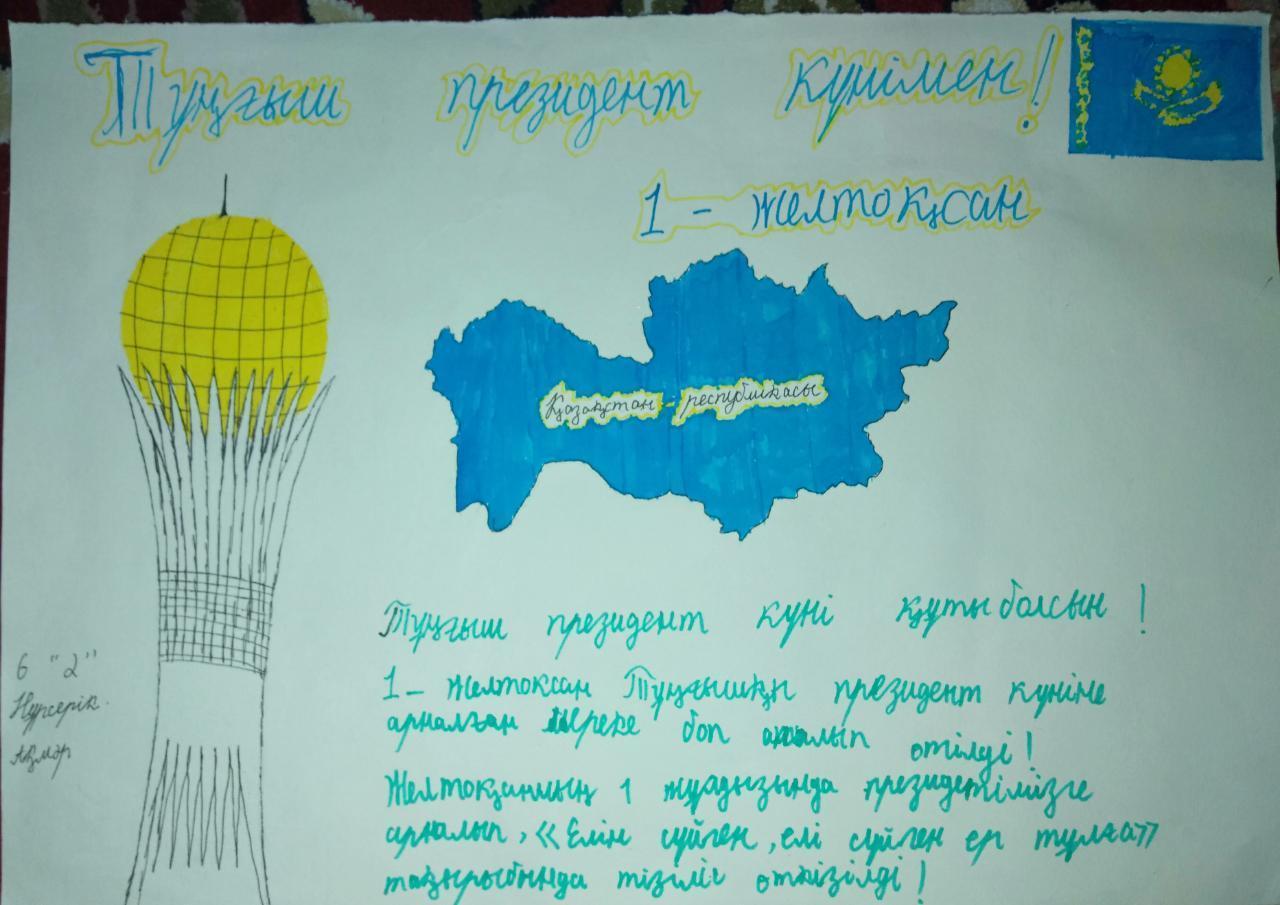 Тұңғыш президент күнімен!
1 - желтоқсан
Қазақстан - республикасы
Тұңғыш президент күні құтыболсын !
1 - Желтоксан Тұңғышқы президент күніне
арналған Мереке боп аталып отілді !
Желтоқсанның 1 жұлдызында президетімізге
арналып, «Елін сүйген, елі сүйген ер тұлға»
тақырыбында тізіліс откізілді !
6 "2"
Нұрсерік.